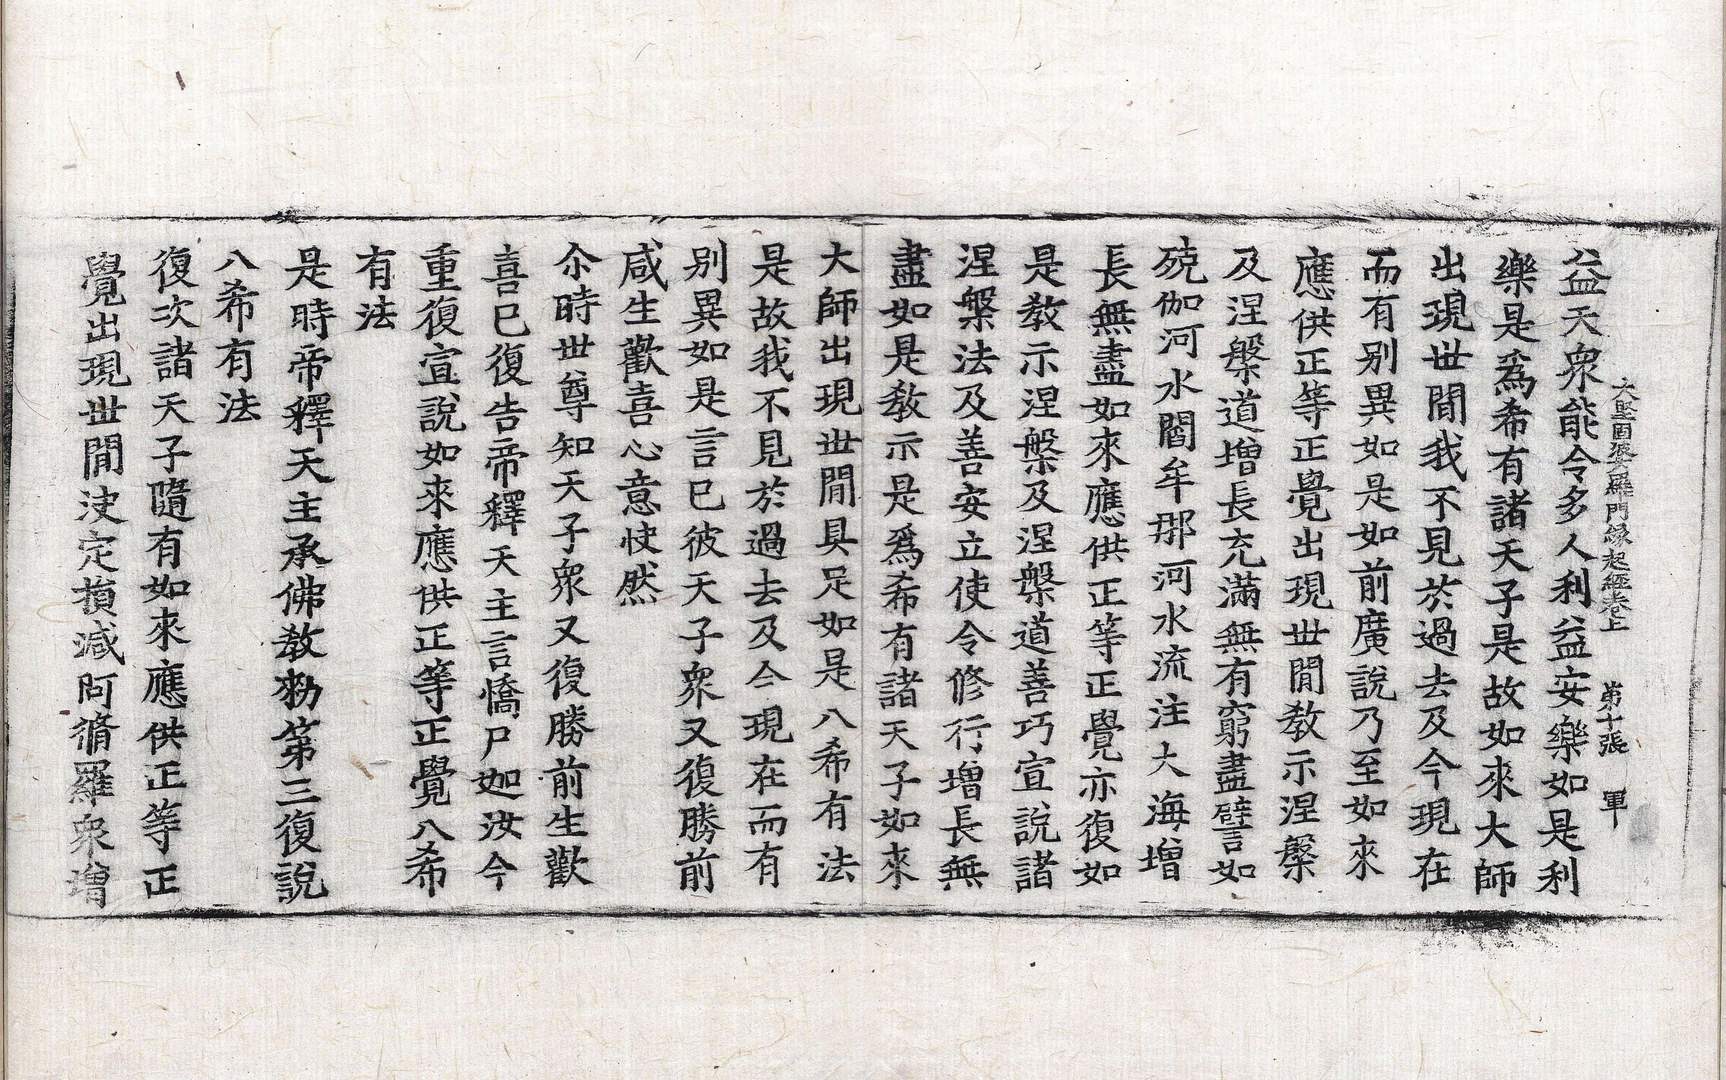 大堅固婆羅門緣起經卷上 第十張 軍
益天衆能令多人利益安樂如是利
樂是爲希有諸天子是故如來大師
出現世間我不見於過去及今現在
而有別異如是如前廣說乃至如來
應供正等正覺出現世間教示涅槃
及涅槃道增長充滿無有窮盡譬如
殑伽河水閻牟那河水流注大海增
長無盡如來應供正等正覺亦復如
是教示涅槃及涅槃道善巧宣說諸
涅槃法及善安立使令修行增長無
盡如是教示是爲希有諸天子如來
大師出現世間具足如是八希有法
是故我不見於過去及今現在而有
別異如是言已彼天子衆又復勝前
咸生歡喜心意快然
尒時世尊知天子衆又復勝前生歡
喜已復告帝釋天主言憍尸迦汝今
重復宣說如來應供正等正覺八希
有法
是時帝釋天主承佛教勑第三復說
八希有法
復次諸天子隨有如來應供正等正
覺出現世間決定損減阿脩羅衆增